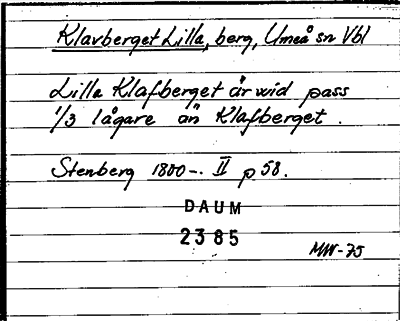 Klavberget Lilla, berg, Umeå sn Vbl
Lilla Klafberget är wid pass
1/3 lågare än Klafberget.
Stenberg 1800-. II p 58.
DAUM
2385
MW-75